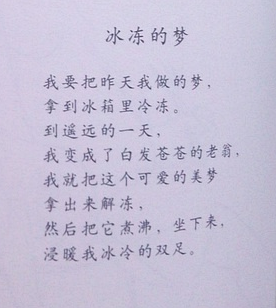 冰冻的梦
我要把昨天我做的梦，
拿到冰箱里冷冻。
到遥远的一天，
我变成了白发苍苍的老翁，
我就把这个可爱的美梦
拿出来解冻，
然后把它煮沸，坐下来，
浸暖我冰冷的双足。